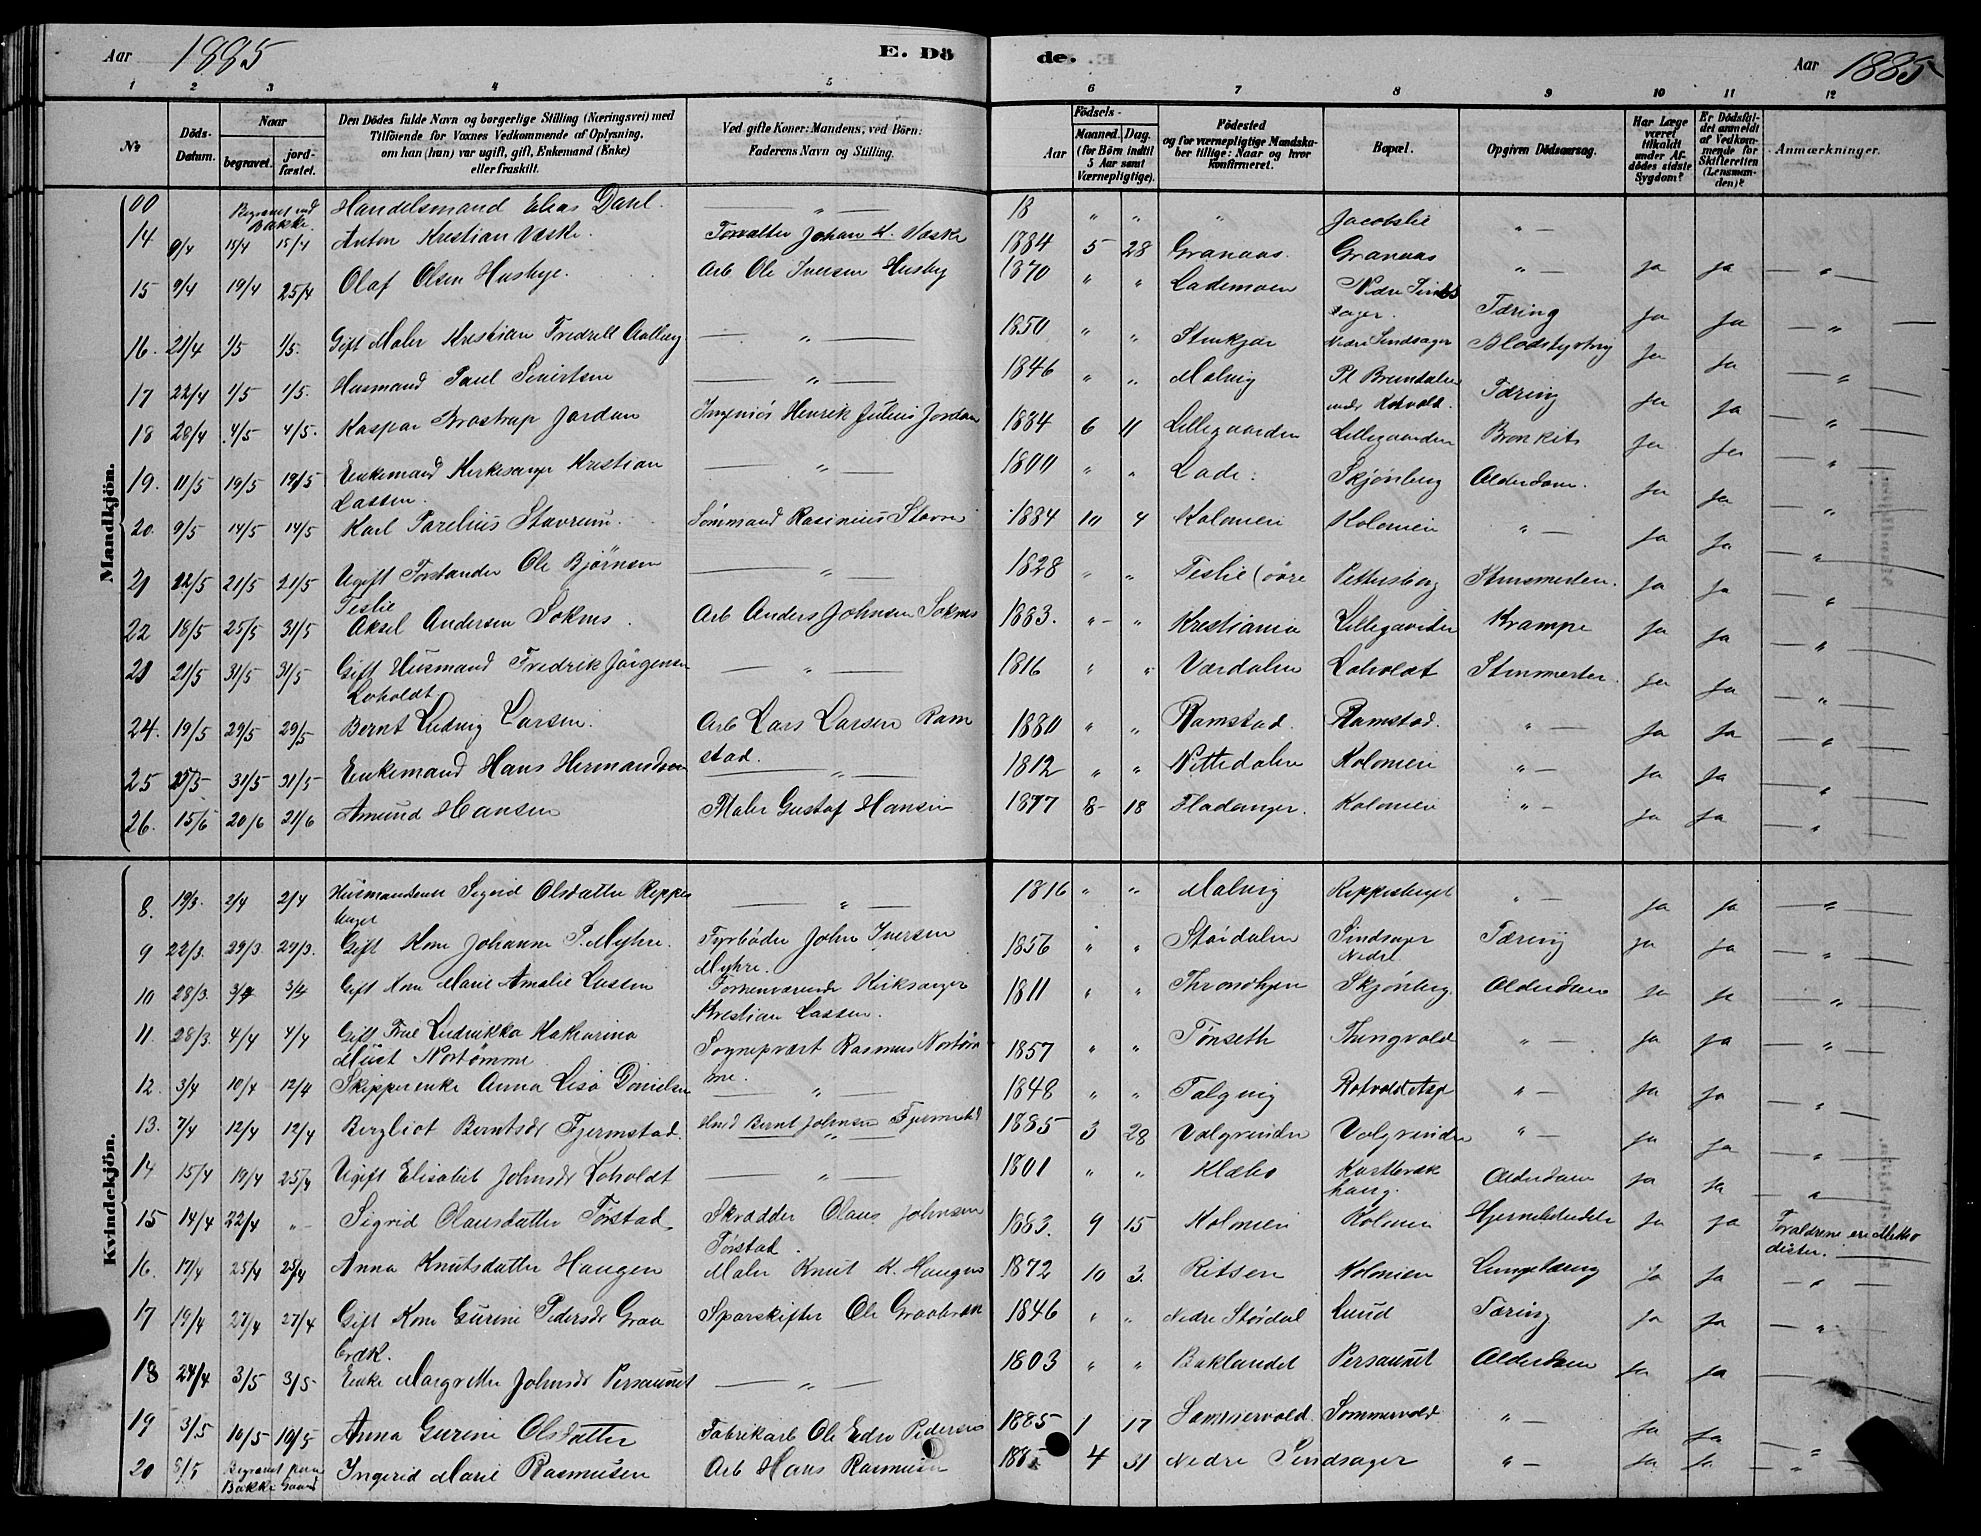 Aar 1885 E. Dö de. Aar 1885
1 2 3 4 5 6 7 8 9 10 11 12
No Döds-Datum. Naar begravet. jordfæstet. Den Dödes fulde Navn og borgerlige Stilling (Næringsvei) med Tilföiende for Voxnes Vedkommende af Oplysning, om han (hun) var ugift, gift, Enkemand (Enke) eller fraskilt. Ved gifte Koner: Mandens, ved Börn: Faderens Navn og Stilling. Födsels- Aar Maaned. Dag. (for Börn indtil 5 Aar samt Værnepligtige). Födested og for værnepligtige Mandskaber tillige: Naar og hvor konfirmeret. Bopæl. Opgiven Dödsaarsag. Har Læge været tilkaldt under Afdödes sidste Sygdom? Er Dödsfaldet anmeldt af Vedkommende for Skifteretten (Lensmanden)? Anmærkninger.
Mandkjön.
00 Begravet ved Bakke. Handelsmand Elias Dahl. — " — 18 " " " Jacobslie " —
14 9/4 15/4 15/4 Anton Kristian Væske. Forvalter Johan K. Væske 1884 5 28 Granaas. Granaas " — Ja Ja — " —
15 9/4 19/4 25/4 Olaf Olsen Husbye. Arb Ole Iversen Husby 1870 " " Lademoen Nedre Sindsager. Tæring Ja Ja — " —
16. 21/4 1/5 1/5. Gift Maler Kristian Fredrik Aalberg — " — 1850 " " Stenkjær Nedre Sindsager Blodstyrtning Ja Ja — " —
17 22/4 1/5 1/5. Husmand Paul Sivertsen — " — 1846 " " Malvig Pl Brundalen under Rotvold. Tæring Ja Ja — " —
18 28/4 4/5 4/5. Kaspar Brostrup Jordan Ingeniör Henrik Julius Jordan 1884 6 11 Lillegaarden Lillegaarden Bronkits Ja Ja — " —
19. 11/5 19/5 19/5 Enkemand Kirkesanger Kristian Lassen. — " — 1800 " " Lade. Skjönberg Alderdom. Ja Ja — " —
20. 9/5 14/5 14/5 Karl Parelius Stavrum. Sömmand Rasinius Stavrum 1884 10 4 Kolonien Kolonien " — Ja Ja — " —
21 12/5 21/5 21/5 Ugift Forstander Ole Björnsen Teslie — " — 1828 " " Teslie Pettersborg Stensmerter. Ja Ja — " —
22 18/5 25/5 31/5 Aksel Andersen Soknes. Arb Anders Johnsen Soknes 1883. " " Kristiania Lillegaarden Krampe Ja Ja — " —
23 21/5 31/5 31/5 Gift Husmand Fredrik Jörgensen Loholdt — " — 1816 " " Værdalen Loholdt Stensmerter. Ja Ja — " —
24. 19/5 29/5 29/5 Bernt Ludvig Larsen. Arb Lars Larsen Ramstad. 1880 " " Ramstad. Ramstad. " — Ja Ja — " —
25 25/5 31/5 31/5 Enkemand Hans Hermandsen — " — 1812 " " Nittedalen Kolonien " — Ja Ja — " —
26. 15/6 20/6 21/6 Amund Hansen Maler Gustaf Hansen 1877 8 18 Fladanger. Kolonien " — Ja Ja — " —
Kvindekjön.
8. 19/3. 2/4 2/4 Husmandsenke Sigrid Olsdatter Reppesberget — " — 1816 " " Malvig Reppesberget " — Ja Ja — " —
9 22/3. 29/3 29/3. Gift Kone Johanne P. Myhre. Fyrböder John Iversen Myhre. 1856 " " Stördalen Sindsager Nedre Tæring Ja Ja — " —
10 28/3. 3/4 3/4 Gift Kone Marie Amalie Lassen Forhenværende Kirksanger Kristian Lassen. 1811 " " Throndhjem Skjönberg. Alderdom Ja Ja — " —
11 28/3. 4/4 4/4 Gift Frue Ludvikka Katharina Müst Nortömme Sogneprest Rasmus Nortömme. 1857 " " Tönseth Tungvold " — Ja Ja — " —
12. 3/4 10/4 12/4 Skipperenke Anna Lisa Danielsen — " — 1848 " " Talgvig Rotvold Asyl " — Ja Ja — " —
13. 7/4 12/4 12/4 Bergliot Berntsdr Fjermstad. Hmd Bernt Johnsen Fjermstad 1885 3 28 Valgrinden Valgrinden " — Ja Ja — " —
14 15/4 19/4 25/4 Ugift Elisabet Johnsdr Loholdt — " — 1801 " " Klæbo Alderdom Ja Ja — " —
15 14/4 22/4 " Sigrid Olausdatter Törstad Skrædder Olaus Johnsen Törstad. 1883. 9 15 Kolonien Kolonien Ja Ja Forældrene ere Metodister.
16. 17/4 25/4 25/4 Anna Knutsdatter Haugen Maler Knut K. Haugen 1872 10 3. Ritsen Kolonien Lungetæring Ja Ja — " —
17 19/4 27/4 27/4 Gift Kone Gurine Pedersdr Graabræk. Sporskifter Ole Graabræk 1846 " " Nedre Stördal Luud Tæring Ja Ja — " —
18 24/4 3/5 3/5 Enke Margrette Johnsdr Persaunet — " — 1803 " " Baklandet Persaunet Alderdom Ja Ja
19 3/5 10/5 10/5 Anna Gurine Olsdatter Fabrikarb Ole Edv Pedersen 1885 1 17 Sommervold. Sommervold " — Ja Ja — " —
20 9/5 Begravet paa Bakke Gaard Ingerid Marie Rasmusen Arb Hans Rasmusen 188 4 31 Nedre Sindsager " — Ja Ja — " —